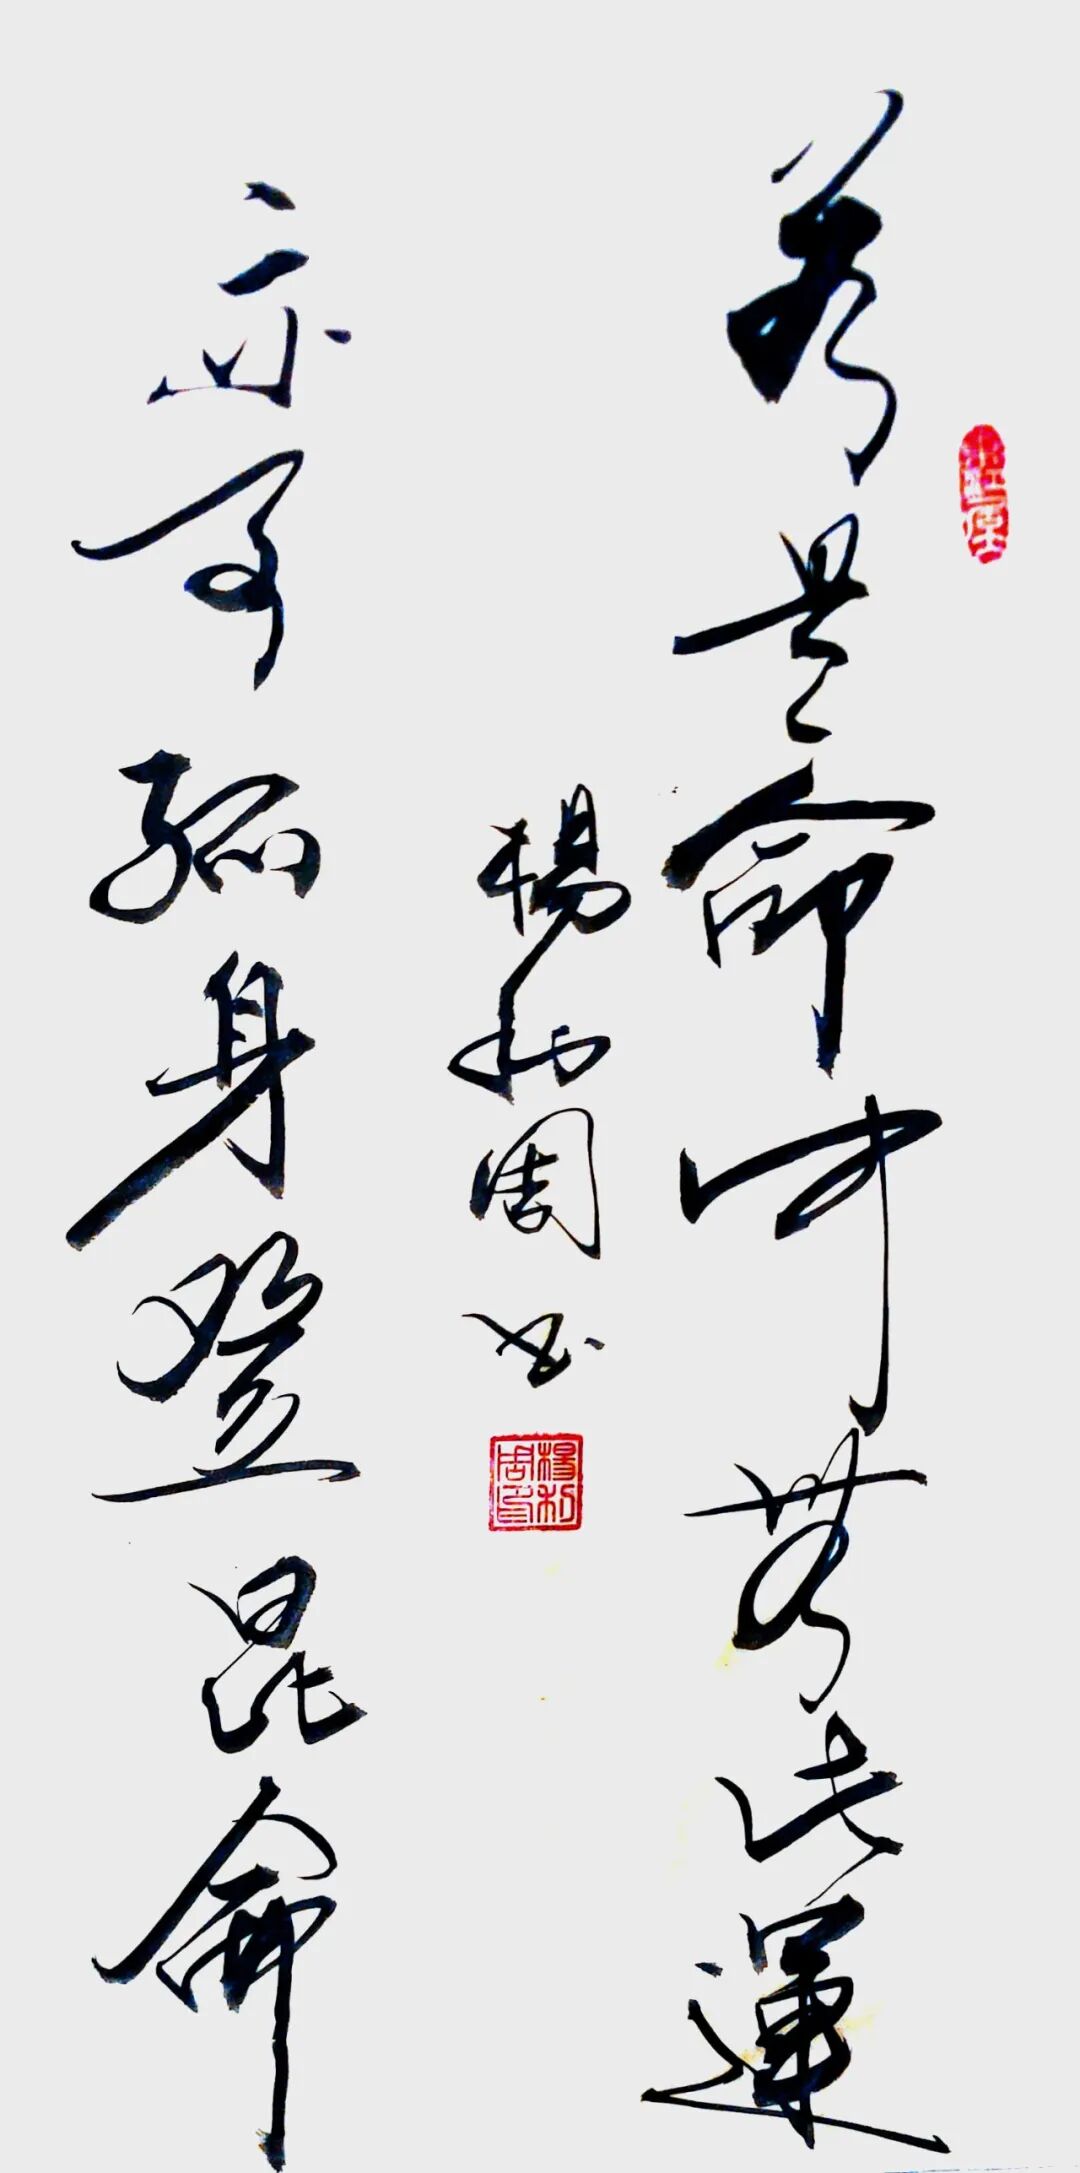 若是命中無此運
亦可孤身登昆侖
楊利周书
楊利周印